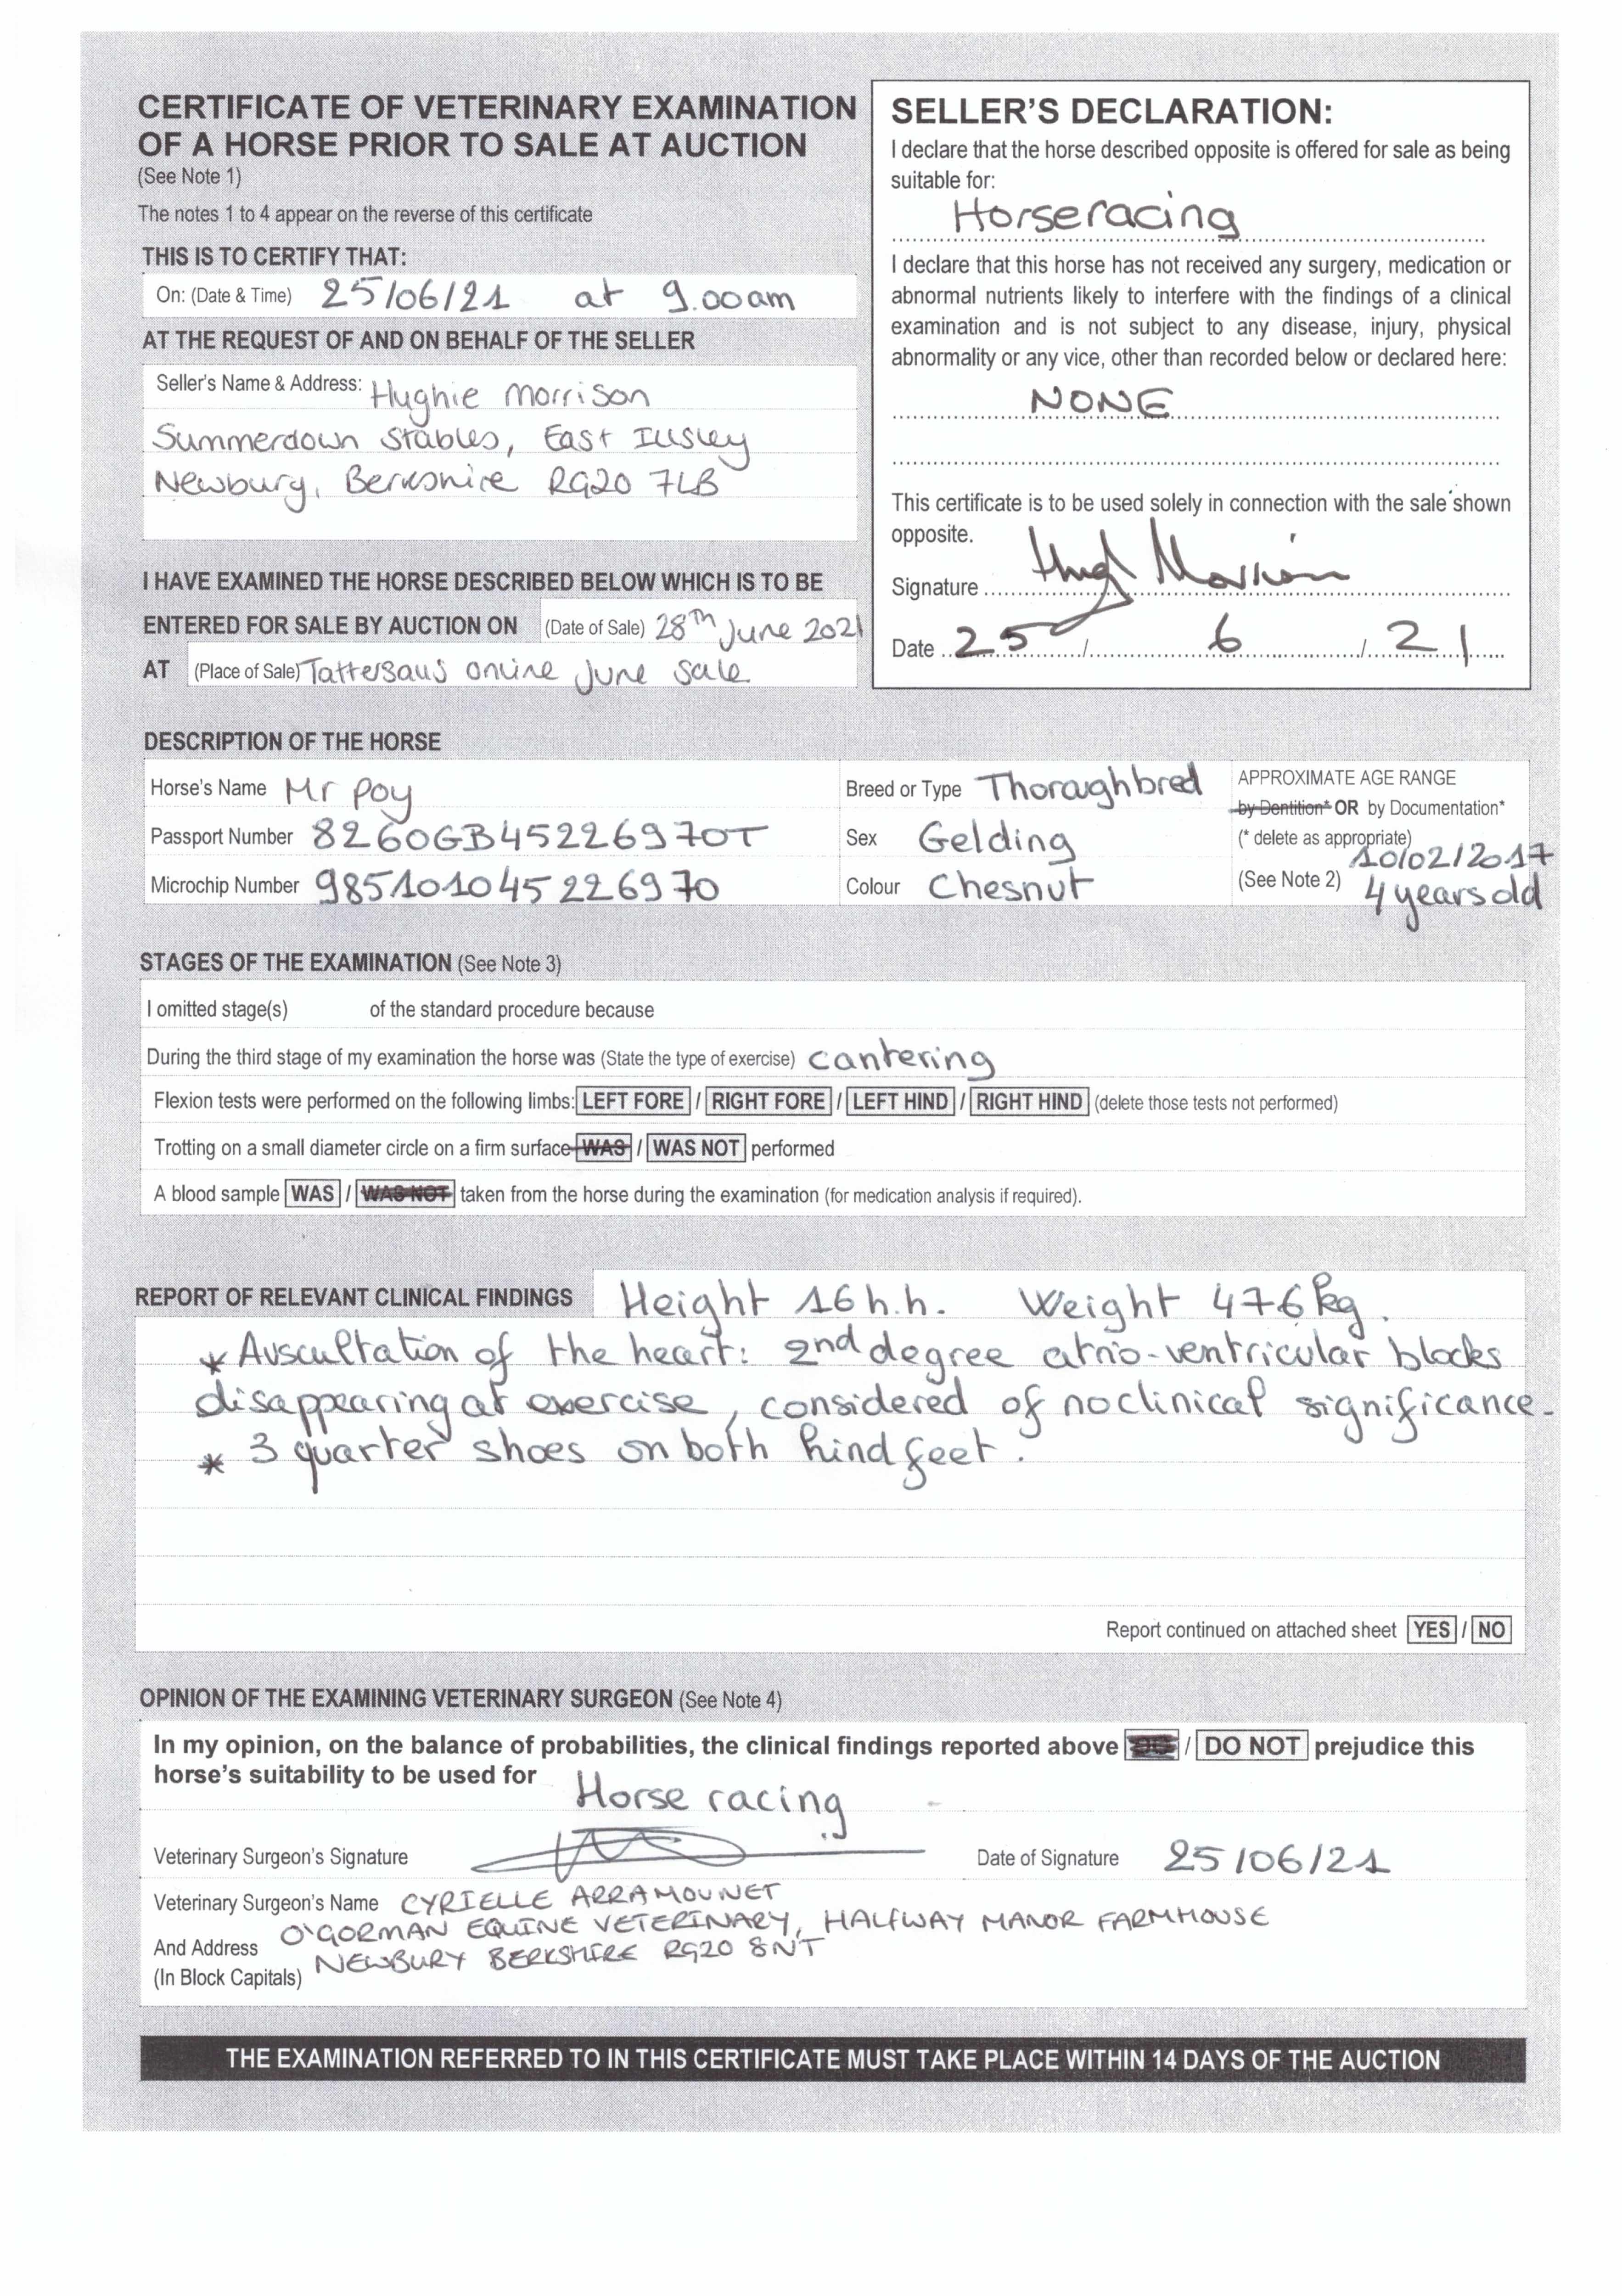 CERTIFICATE OF VETERINARY EXAMINATION
OF A HORSE PRIOR TO SALE AT AUCTION
(See Note 1)
The notes 1 to 4 appear on the reverse of this certificate
THIS IS TO CERTIFY THAT:
On: (Date & Time) 25/06/21 at 9.00am
AT THE REQUEST OF AND ON BEHALF OF THE SELLER
Seller's Name & Address: Hughie Morrison
Summerdown Stables, East Ilsley
Newbury, Berkshire RG20 7LB
I HAVE EXAMINED THE HORSE DESCRIBED BELOW WHICH IS TO BE
ENTERED FOR SALE BY AUCTION ON (Date of Sale) 28th June 2021
AT (Place of Sale) Tattersalls online June Sale
SELLER'S DECLARATION:
I declare that the horse described opposite is offered for sale as being
suitable for:
Horseracing
I declare that this horse has not received any surgery, medication or
abnormal nutrients likely to interfere with the findings of a clinical
examination and is not subject to any disease, injury, physical
abnormality or any vice, other than recorded below or declared here:
NONE
This certificate is to be used solely in connection with the sale shown
opposite.
Signature Hugh Morrison
Date 25 / 6 / 21
DESCRIPTION OF THE HORSE
Horse's Name Mr Poy
Passport Number 8260GB45226970T
Microchip Number 985101045226970
Breed or Type Thoraghbred
Sex Gelding
Colour Chesnut
APPROXIMATE AGE RANGE
by Dentition* OR by Documentation*
(* delete as appropriate)
10/02/2017
(See Note 2) 4 years old
STAGES OF THE EXAMINATION (See Note 3)
I omitted stage(s) of the standard procedure because
During the third stage of my examination the horse was (State the type of exercise) cantering
Flexion tests were performed on the following limbs: LEFT FORE / RIGHT FORE / LEFT HIND / RIGHT HIND (delete those tests not performed)
Trotting on a small diameter circle on a firm surface WAS / WAS NOT performed
A blood sample WAS / WAS NOT taken from the horse during the examination (for medication analysis if required).
REPORT OF RELEVANT CLINICAL FINDINGS Height 16 h.h. Weight 476kg.
* Auscultation of the heart: 2nd degree atrio-ventricular blocks
disappearing at exercise, considered of no clinical significance.
* 3 quarter shoes on both hind feet.
Report continued on attached sheet YES / NO
OPINION OF THE EXAMINING VETERINARY SURGEON (See Note 4)
In my opinion, on the balance of probabilities, the clinical findings reported above DO / DO NOT prejudice this
horse's suitability to be used for Horse racing
Veterinary Surgeon's Signature
Date of Signature 25/06/21
Veterinary Surgeon's Name CYRIELLE ARRAMOUNET
O'GORMAN EQUINE VETERINARY, HALFWAY MANOR FARMHOUSE
And Address NEWBURY BERKSHIRE RG20 8NT
(In Block Capitals)
THE EXAMINATION REFERRED TO IN THIS CERTIFICATE MUST TAKE PLACE WITHIN 14 DAYS OF THE AUCTION